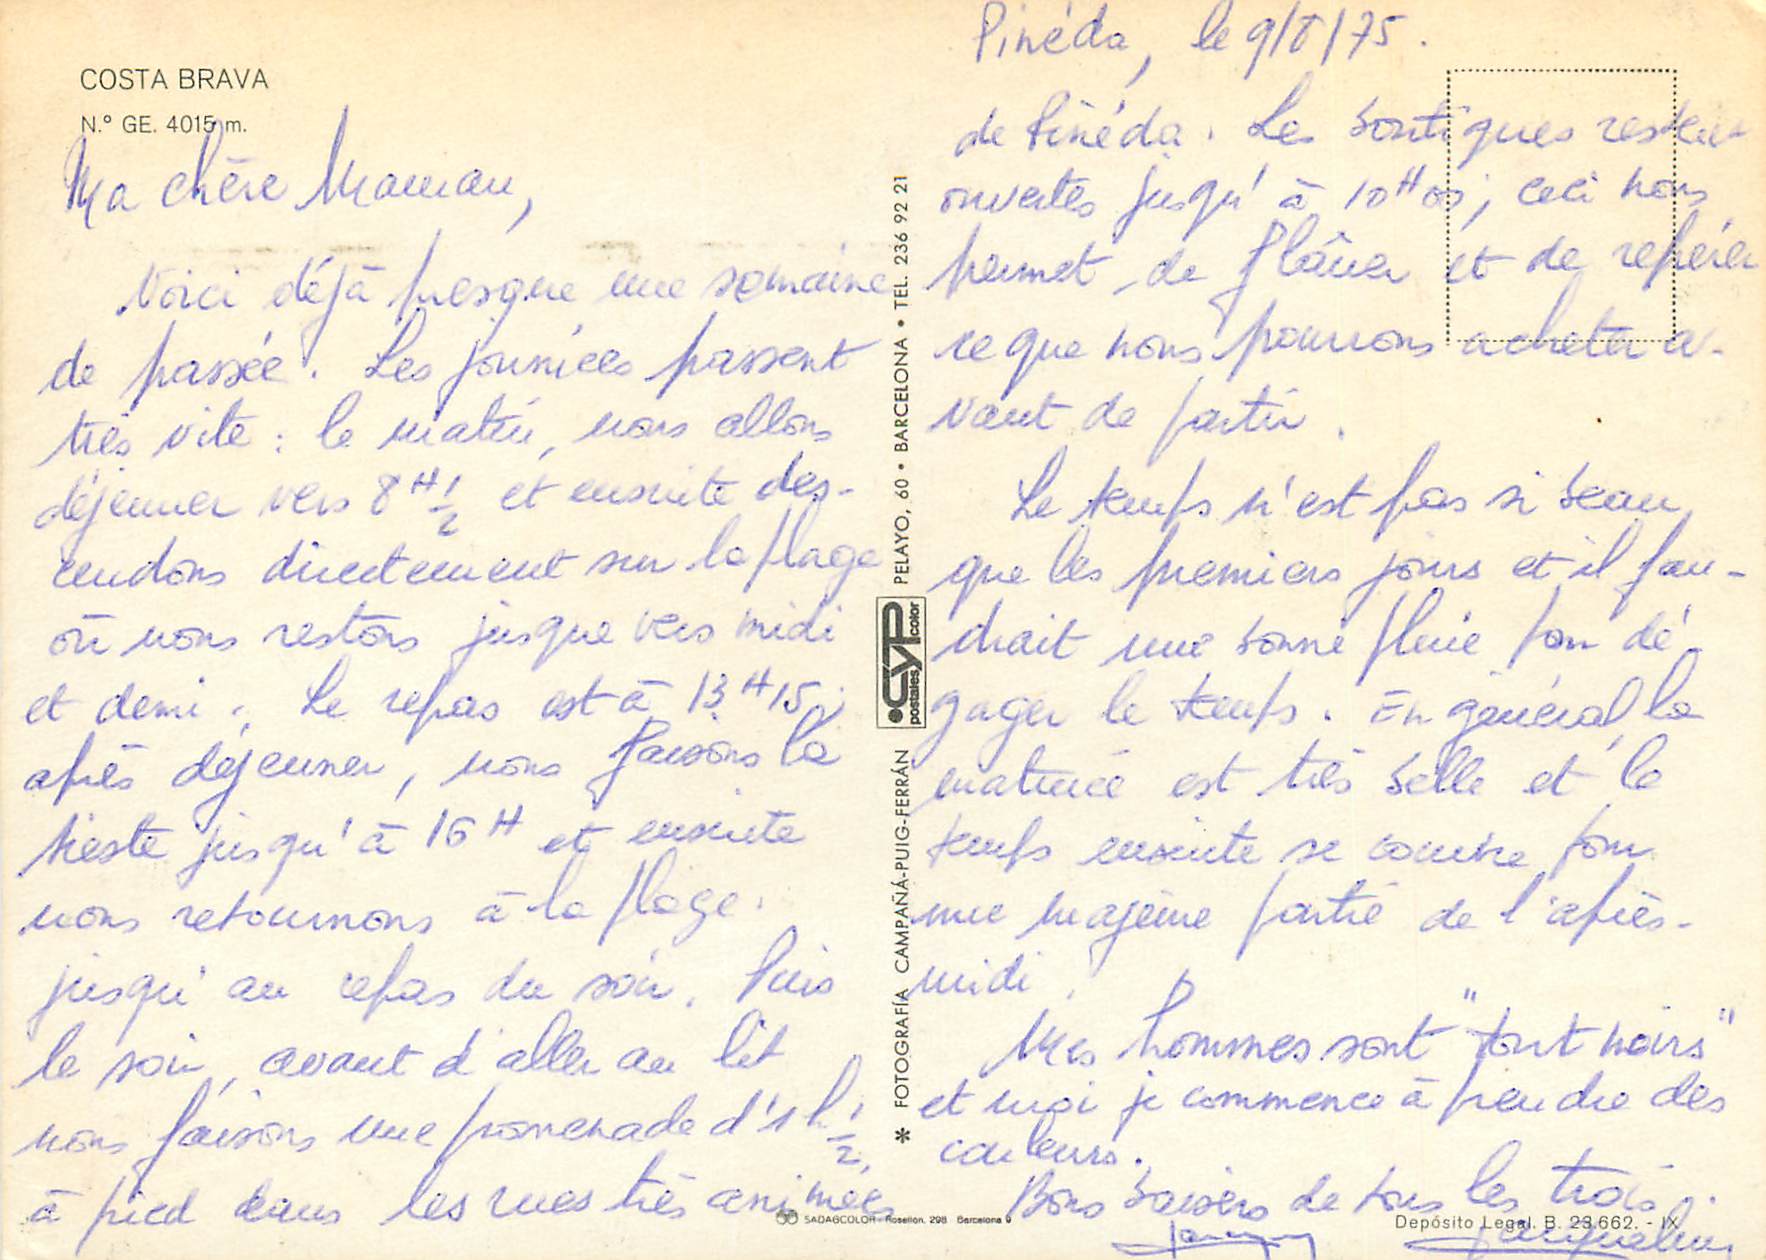 COSTA BRAVA
N.º GE. 4015 m.
Ma chère Maman,
Voici déjà presque une semaine
de passée. Les journées passent
très vite : le matin, nous allons
déjeuner vers 8H 1/2 et ensuite des-
cendons directement sur la plage
où nous restons jusque vers midi
et demi. Le repas est à 13H15 ;
après déjeuner, nous faisons la
sieste jusqu'à 16H et ensuite
nous retournons à la plage.
jusqu'au repas du soir. Puis
le soir, avant d'aller au lit
nous faisons une promenade d'1h 1/2
à pied dans les rues très animées
* FOTOGRAFÍA CAMPAÑÁ-PUIG-FERRÁN
CYP
postales color
PELAYO, 60 • BARCELONA • TEL. 236 92 21
Pinéda, le 9/8/75.
de Pinéda. Les boutiques restent
ouvertes jusqu'à 10H ; ceci nous
permet de flâner et de repérer
ce que nous pourrons acheter a-
vant de partir.
Le temps n'est pas si beau
que les premiers jours et il fau-
drait une bonne pluie pour dé-
gager le temps. En général, la
matinée est très belle et le
temps ensuite se couvre pour
une majeure partie de l'après-
midi.
Mes hommes sont "tout noirs"
et moi je commence à prendre des
couleurs.
Bons baisers de tous les trois.
Jacqueline
SADAGCOLOR - Rosellon, 298 Barcelona 9
Depósito Legal. B. 23.662. - IX